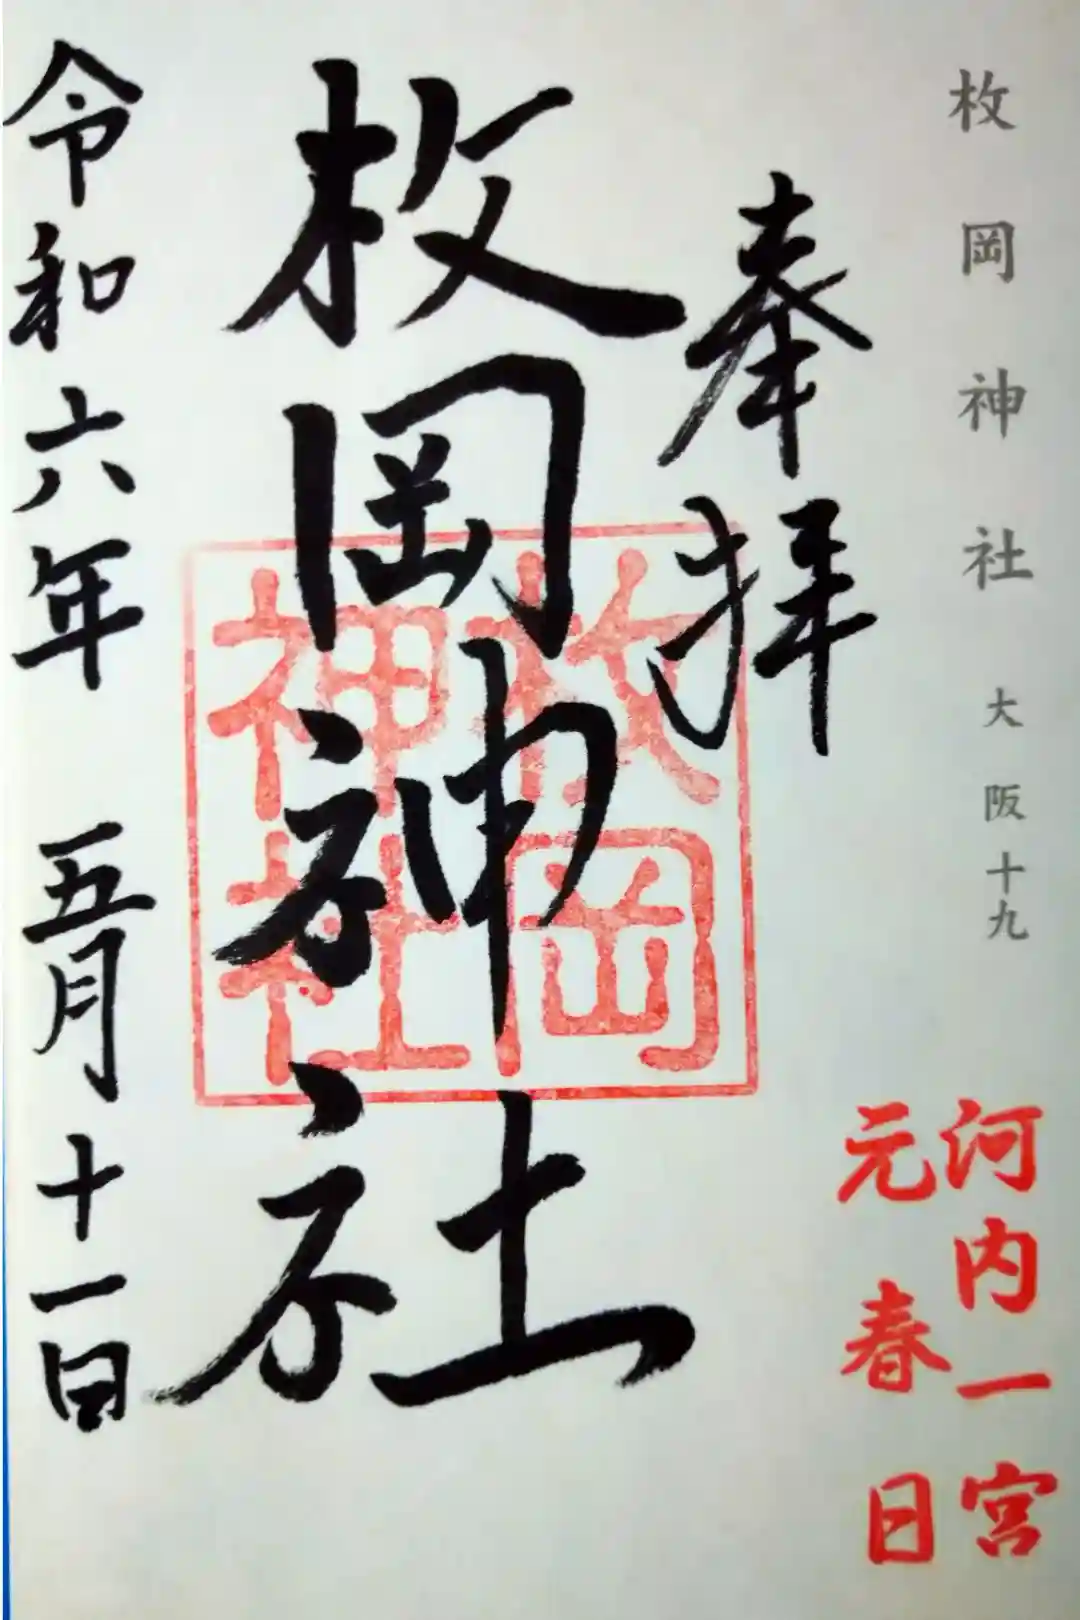 枚岡神社 大阪十九
河内一宮
元春日
奉拝
枚岡神社
枚岡
神社
令和六年 五月十一日